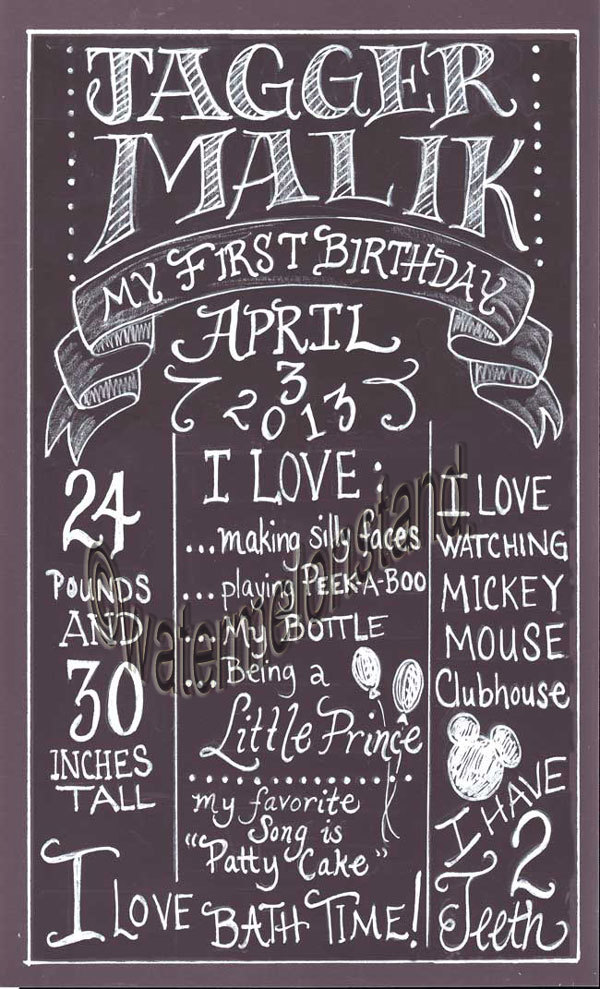 JAGGER
MALIK
MY FIRST BIRTHDAY
APRIL
3
2013
24
POUNDS
AND
30
INCHES
TALL
I LOVE :
...making silly faces
...playing PEEK-A-BOO
...My BOTTLE
...Being a
Little Prince
my favorite
Song is
"Patty Cake"
I LOVE
WATCHING
MICKEY
MOUSE
Clubhouse
I HAVE
2
Teeth
I LOVE BATH TIME!
©watermelonstand